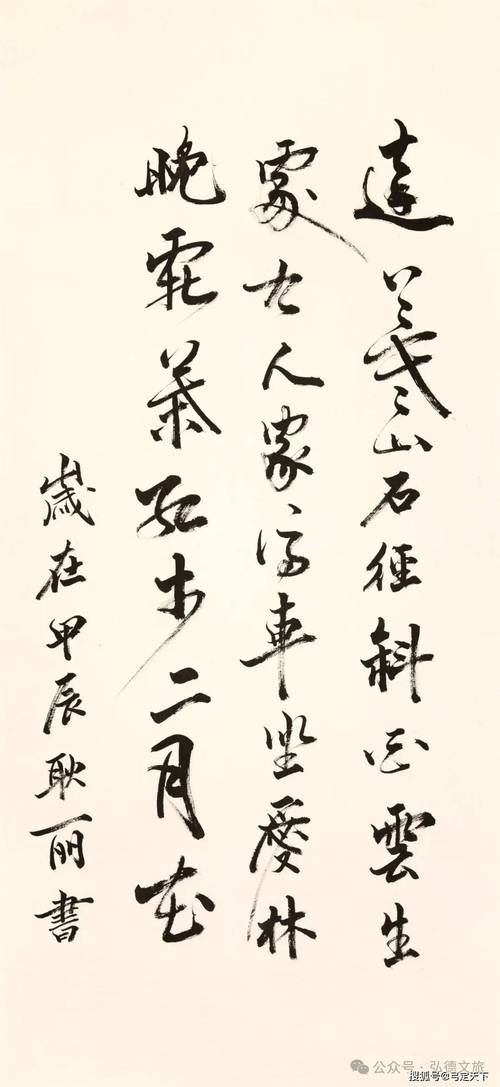 遠上寒山石徑斜白雲生
處有人家停車坐愛林
晚霜葉紅於二月花
歲在甲辰耿丽書
公众号·弘德文旅
搜狐号@弓定天下